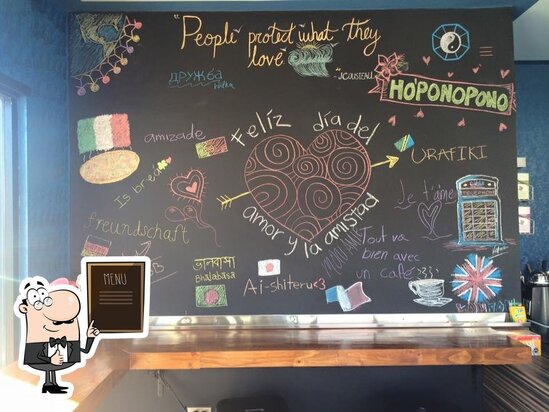 "People protect what they
love"
"JCOUSTEAU
ДРУЖБА
HOPONOPONO
amizade
Feliz día del
amor y la amistad
URAFIKI
Is breá
Je t'aime
TELEPHONE
freundschaft
Tout va
bien avec
un café
ভালবাসা
Bhalabasa
Ai-shiteru<3
MENU